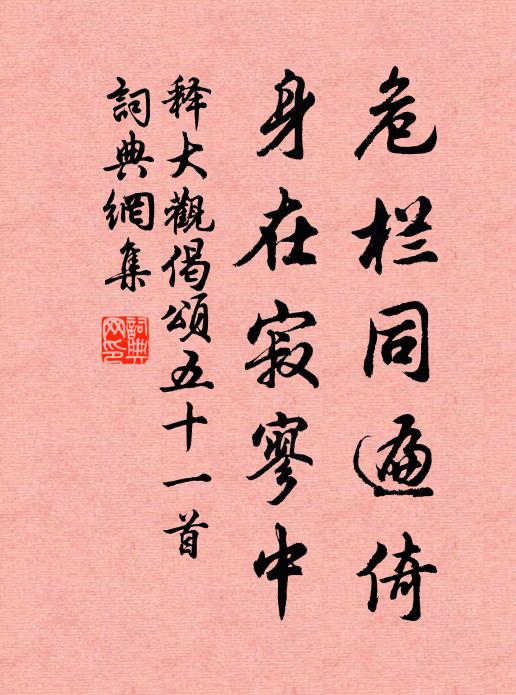 危栏同遍倚
身在寂寥中
释大觀偈頌五十一首
詞典網集
詞典網印